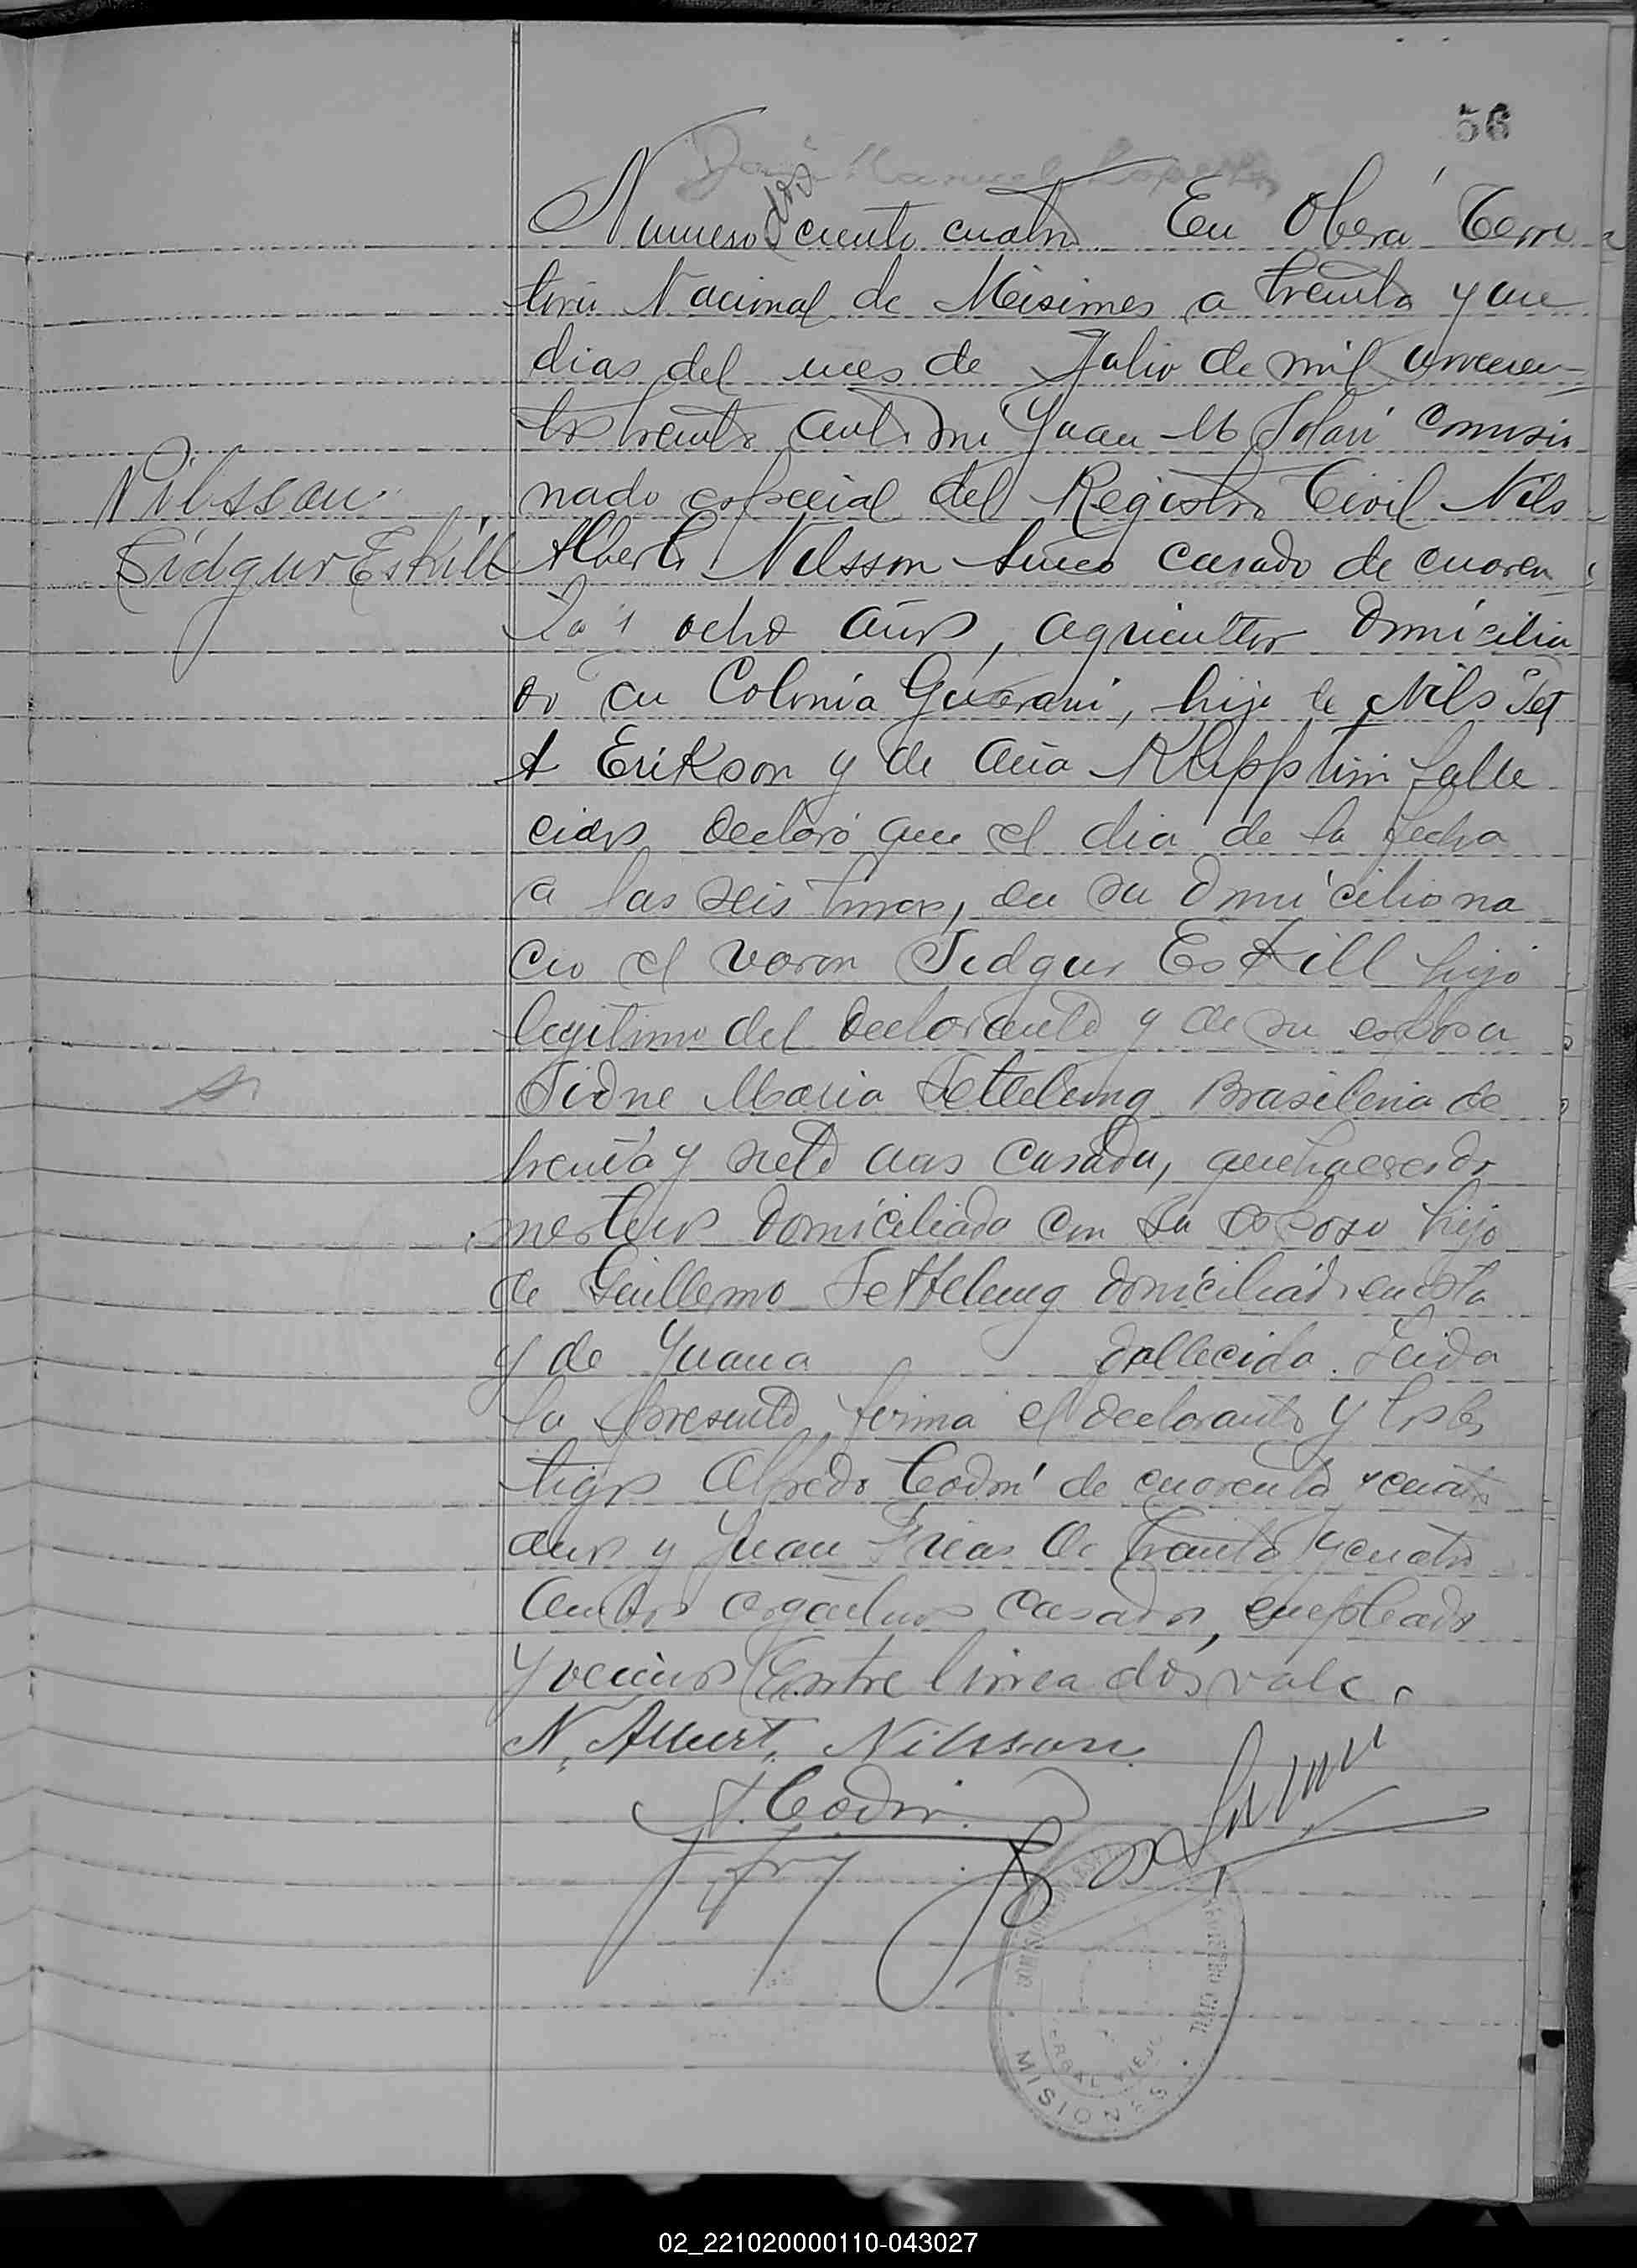 56
Numero dos ciento cuatro En Oberá Terri
torio Nacional de Misiones a treinta y un
dias del mes de Julio de mil novecien
tos treinta ante mi Juan M Solari Comisio
nado especial del Registro Civil Nils
Alberto Nilsson Sueco casado de cuaren
ta y ocho años, agricultor domicilia
do en Colonia Guarani, hijo de Nils
Erikson y de Ana falle
cidos declaró que el dia de la fecha
a las seis horas, en su domicilio na
cio el varon Sidgur Eskill hijo
legitimo del declarante y de su esposa
Sidne Maria Tetteleung Brasileña de
treinta y siete años casada, quehaceres do
mesticos domiciliada con su esposo hija
de Guillermo Tetteleung domiciliado en esta
y de Juana fallecida. Leida
la presente, firma el declarante y los tes
tigos Alfredo Codri de cuarenta y cuatro
años y Juan Frias de treinta y cuatro
ambos argentinos casados, empleados
y vecinos Entre linea dos vale.
Nilsson
Sidgur Eskill
N. Albert. Nilsson.
A. Codri
COMISIONADO REGISTRO CIVIL
YERBAL VIEJO
MISIONES
02_221020000110-043027